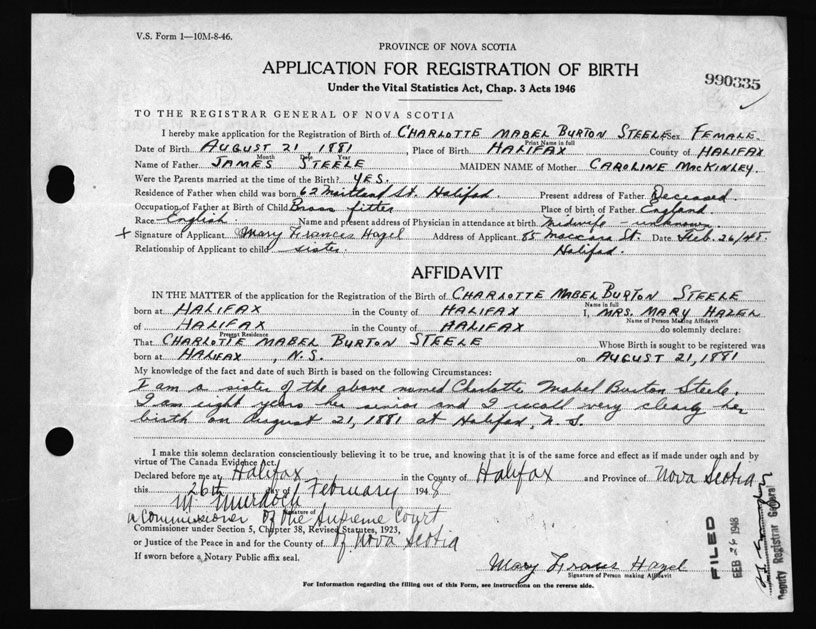 V.S. Form 1—10M-8-46.
PROVINCE OF NOVA SCOTIA
APPLICATION FOR REGISTRATION OF BIRTH
990335
Under the Vital Statistics Act, Chap. 3 Acts 1946
TO THE REGISTRAR GENERAL OF NOVA SCOTIA
I hereby make application for the Registration of Birth of CHARLOTTE MABEL BURTON STEELE Sex FEMALE.
Print Name in full
Date of Birth AUGUST 21, 1881, Place of Birth HALIFAX County of HALIFAX
Month Date Year
Name of Father JAMES STEELE MAIDEN NAME of Mother CAROLINE MACKINLEY.
Were the Parents married at the time of the Birth? YES.
Residence of Father when child was born 62 Maitland St. Halifax. Present address of Father Deceased.
Occupation of Father at Birth of Child Brass fitter Place of birth of Father England
Race English Name and present address of Physician in attendance at birth midwife - unknown.
+ Signature of Applicant Mary Frances Hazel Address of Applicant 85 Maccara St. Date Feb. 26/48.
Relationship of Applicant to child sister. Halifax.
AFFIDAVIT
IN THE MATTER of the application for the Registration of the Birth of CHARLOTTE MABEL BURTON STEELE
Name in full
born at HALIFAX in the County of HALIFAX I, MRS. MARY HAZEL
Name of Person Making Affidavit
of HALIFAX in the County of HALIFAX do solemnly declare:
Present Residence
That CHARLOTTE MABEL BURTON STEELE Whose Birth is sought to be registered was
born at HALIFAX, N.S. on AUGUST 21, 1881
My knowledge of the fact and date of such Birth is based on the following Circumstances:
I am a sister of the above named Charlotte Mabel Burton Steele.
I am eight years her senior and I recall very clearly her
birth on August 21, 1881 at Halifax, N.S.
I make this solemn declaration conscientiously believing it to be true, and knowing that it is of the same force and effect as if made under oath and by
virtue of The Canada Evidence Act.
Declared before me at Halifax in the County of Halifax and Province of Nova Scotia
this 26th day of February 1948
M Murdoch
Signature of
a Commissioner of the Supreme Court
Commissioner under Section 5, Chapter 38, Revised Statutes, 1923,
or Justice of the Peace in and for the County of of Nova Scotia
If sworn before a Notary Public affix seal.
Mary Frances Hazel
Signature of Person making Affidavit
For Information regarding the filling out of this Form, see instructions on the reverse side.
FILED
FEB 26 1948
Deputy Registrar General